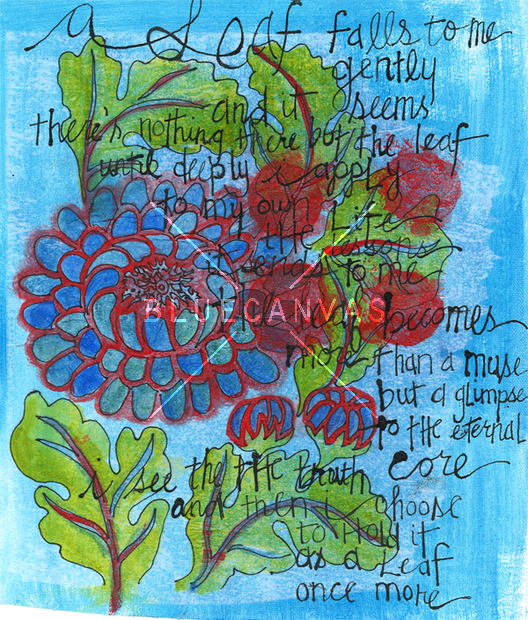 a Leaf falls to me
gently
and it seems
there's nothing there but the leaf
until deeply i apply
to my own
life
the lessons
it sends to me
the leaf becomes
more than a muse
but a glimpse
to the eternal
core
i see the the truth
and then i choose
to hold it
as a Leaf
once more
BLUECANVAS